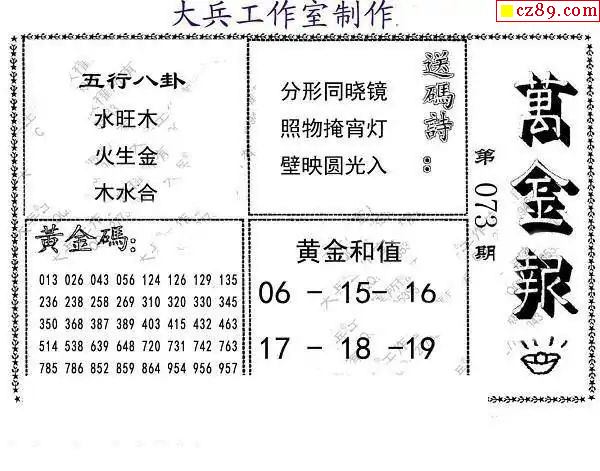 大兵工作室制作
cz89.com
五行八卦
水旺木
火生金
木水合
送碼詩：
分形同晓镜
照物掩宵灯
壁映圆光入
萬金報
第073期
黃金碼：
013 026 043 056 124 126 129 135
236 238 258 269 310 320 330 345
350 368 387 389 403 415 432 463
514 538 639 648 720 731 742 763
785 786 852 859 864 954 956 957
黄金和值
06 - 15- 16
17 - 18 -19